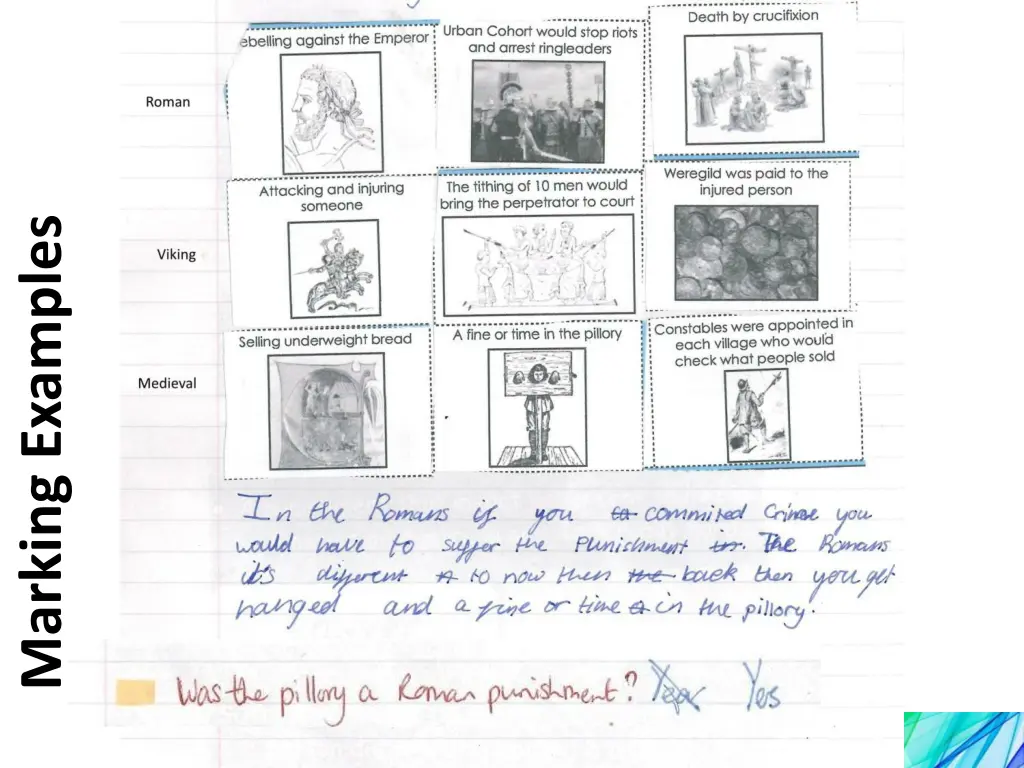 Marking Examples
Roman
ebelling against the Emperor
Urban Cohort would stop riots
and arrest ringleaders
Death by crucifixion
Viking
Attacking and injuring
someone
The tithing of 10 men would
bring the perpetrator to court
Weregild was paid to the
injured person
Medieval
Selling underweight bread
A fine or time in the pillory
Constables were appointed in
each village who would
check what people sold
In the Romans if you to commited Crime you
would have to suffer the Punichment in. The Romans
it's different to now then the back then you get
hanged and a fine or time in the pillory.
Was the pillory a Roman punishment? Yes